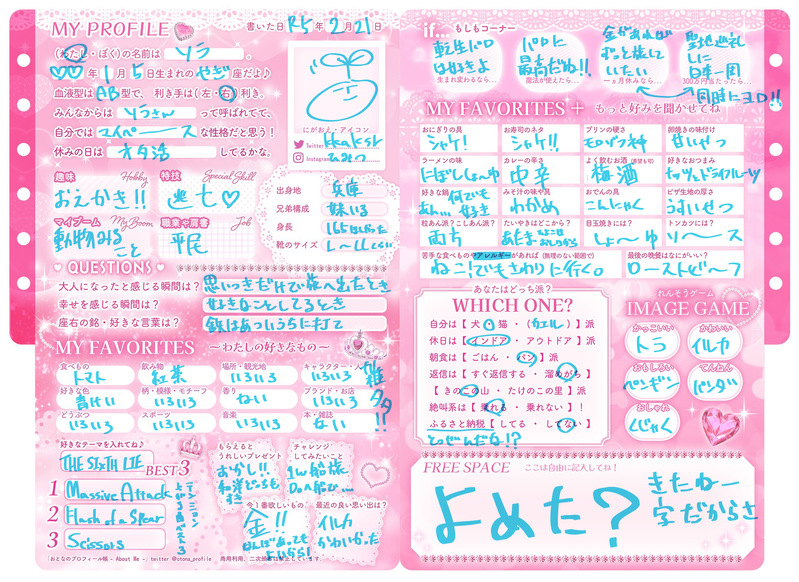 MY PROFILE
書いた日 R5年2月21日
(わたし・ぼく)の名前は ソラ
♡♡年1月5日生まれのやぎ座だよ♪
血液型はAB型で、利き手は(左・右)利き。
みんなからは ソラさん って呼ばれてて、
自分では マイペース な性格だと思う!
休みの日は オタ活 してるかな。
にがおえ・アイコン
Twitter
Instagram ひみつ
趣味 Hobby
おえかき!!
特技 Special Skill
逃亡♡
マイブーム My Boom
動物みること
職業や肩書 Job
平民
出身地 兵庫
兄弟構成 妹いる
身長
靴のサイズ L〜LLくらい
QUESTIONS
大人になったと感じる瞬間は? 思いつきだけで旅へ出たとき
幸せを感じる瞬間は? 好きなことしてるとき
座右の銘・好きな言葉は? 鉄はあついうちに打て
MY FAVORITES 〜わたしの好きなもの〜
食べもの トマト
飲み物 紅茶
場所・観光地 いろいろ
キャラクター・人 いろいろ
好きな色 青けい
柄・模様・モチーフ いろいろ
香り ない
ブランド・お店 いろいろ
どうぶつ いろいろ
スポーツ いろいろ
音楽 いろいろ
本・雑誌 ない
雑タ!!
好きなテーマを入れてね♪
THE SIXTH LIE
BEST3
1 Massive Attack
2 Flash of a Spear
3 Scissors
もらえるとうれしいプレゼント
おかし!!和洋どっちもすき
チャレンジしてみたいこと
1w船旅
今1番欲しいもの
金!!
最近の良い思い出は?
イルカかわいかった
「おとなのプロフィール帳 - About Me -」twitter @otona_profile 商用利用、二次配布は禁止しています。
if... もしもコーナー
転生パロは好きよ
生まれ変わるなら...
パロに最高だね!!
魔法が使えたら...
金があればずっと旅していたい
一ヵ月休みなら...
聖地巡礼しに日本一周
300万円当たったら...
同時にヨロ!!
MY FAVORITES + もっと好みを聞かせてね
おにぎりの具 シャケ!
お寿司のネタ シャケ!!
プリンの硬さ モロゾフ神
卵焼きの味付け 甘いやつ
ラーメンの味 にぼししょーゆ
カレーの辛さ 中辛
よく飲むお酒 (願望も可) 梅酒
好きなおつまみ ナッツとドライフルーツ
好きな鍋 何でも好き
みそ汁の味や具 わかめ
おでんの具 こんにゃく
ピザ生地の厚さ うすいやつ
粒あん?こしあん? 両方
たいやきはどこから? あたま
目玉焼きには? しょーゆ
トンカツには? ソース
苦手な食べものやアレルギーがあれば(無理のない範囲で) ねこ!でもさわりに行く。
最後の晩餐はなにがいい? ローストビーフ
あなたはどっち派?
WHICH ONE?
自分は【 犬・猫 ・(カエル)】派
休日は【 インドア ・ アウトドア 】派
朝食は【 ごはん ・ パン 】派
返信は【 すぐ返信する ・ 溜めがち 】
【 きのこの山 ・ たけのこの里 】派
絶叫系は【 乗れる ・ 乗れない 】!
ふるさと納税【 してる ・ してない 】
れんそうゲーム
IMAGE GAME
かっこいい トラ
かわいい イルカ
おもしろい ペンギン
てんねん パンダ
おしゃれ くじゃく
FREE SPACE ここは自由に記入してね!
よめた?
きたねー字だからさ